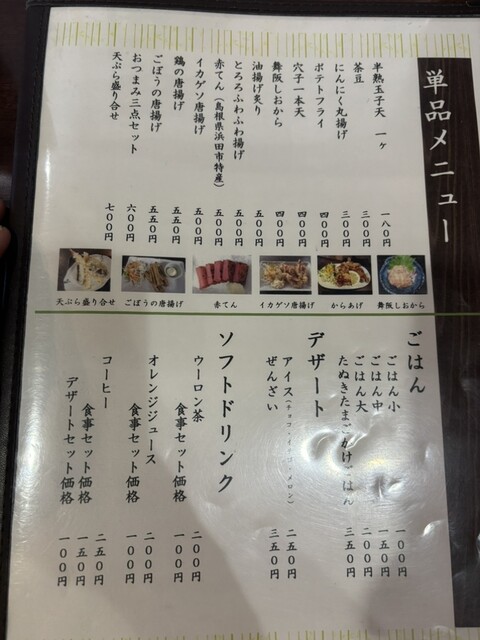 単品メニュー
半熟玉子天 一ヶ 一八〇円
茶豆 三〇〇円
にんにく丸揚げ 三〇〇円
ポテトフライ 四〇〇円
穴子一本天 四〇〇円
舞阪しおから 四〇〇円
油揚げ炙り 五〇〇円
とろろふわふわ揚げ 五〇〇円
赤てん(島根県浜田市特産) 五〇〇円
イカゲソ唐揚げ 五〇〇円
鶏の唐揚げ 五五〇円
ごぼうの唐揚げ 五五〇円
おつまみ三点セット 六〇〇円
天ぷら盛り合せ 七〇〇円
天ぷら盛り合せ
ごぼうの唐揚げ
赤てん
イカゲソ唐揚げ
からあげ
舞阪しおから
ごはん
ごはん小 一〇〇円
ごはん中 一五〇円
ごはん大 二〇〇円
たぬきたまごかけごはん 三五〇円
デザート
アイス(チョコ・イチゴ・メロン) 二五〇円
ぜんざい 三五〇円
ソフトドリンク
ウーロン茶 二〇〇円
食事セット価格 一〇〇円
オレンジジュース 二〇〇円
食事セット価格 一〇〇円
コーヒー 二五〇円
食事セット価格 一五〇円
デザートセット価格 一〇〇円